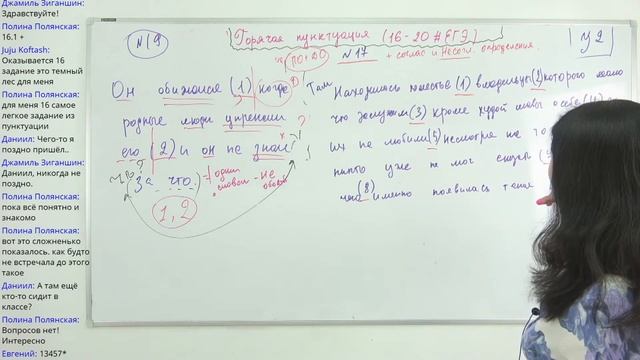 Джамиль Зиганшин:
Здравствуйте!
Полина Полянская:
16.1 +
Juju Koftash:
Оказывается 16
задание это темный
лес для меня
Полина Полянская:
для меня 16 самое
легкое задание из
пунктуации
Даниил: Чего-то я
поздно пришёл..
Джамиль Зиганшин:
Даниил, никогда не
поздно.
Полина Полянская:
пока всё понятно и
знакомо
Полина Полянская:
вот это сложненько
показалось. как будто
не встречала до этого
такое
Даниил: А там ещё
кто-то сидит в
классе?
Полина Полянская:
Вопросов нет!
Интересно
Евгений: 13457*
N 19
Горячая пунктуация (16-20 #ЕГЭ)
N 17 + соглас и несогл. определения
У 2
Он обижался (1) когда
родные люди
его (2) и он не знал
За что.
один
1, 2
Там
Находилось поместье (1) владельцы (2) которого мало
что (3) кроме худой о себе (4)
их не любили (5) несмотря на то
никто уже не мог (
(8) именно появилась такая